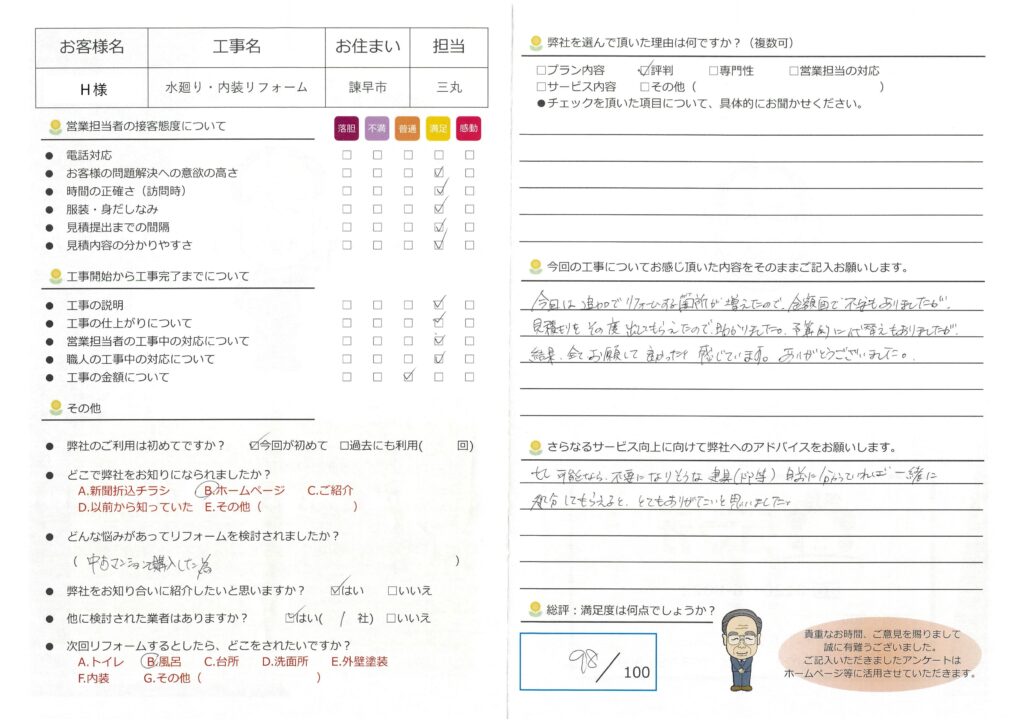 お客様名 工事名 お住まい 担当
H様 水廻り・内装リフォーム 諫早市 三丸
営業担当者の接客態度について 落胆 不満 普通 満足 感動
● 電話対応 □ □ □ □ □
● お客様の問題解決への意欲の高さ □ □ □ ☑ □
● 時間の正確さ（訪問時） □ □ □ ☑ □
● 服装・身だしなみ □ □ □ ☑ □
● 見積提出までの間隔 □ □ □ ☑ □
● 見積内容の分かりやすさ □ □ □ ☑ □
工事開始から工事完了までについて
● 工事の説明 □ □ □ ☑ □
● 工事の仕上がりについて □ □ □ ☑ □
● 営業担当者の工事中の対応について □ □ □ ☑ □
● 職人の工事中の対応について □ □ □ ☑ □
● 工事の金額について □ □ ☑ □ □
その他
● 弊社のご利用は初めてですか？ ☑今回が初めて □過去にも利用( 回)
● どこで弊社をお知りになられましたか？
A.新聞折込チラシ B.ホームページ C.ご紹介
D.以前から知っていた E.その他（ ）
● どんな悩みがあってリフォームを検討されましたか？
（ 中古マンションを購入した為 ）
● 弊社をお知り合いに紹介したいと思いますか？ ☑はい □いいえ
● 他に検討された業者はありますか？ ☑はい( 1 社) □いいえ
● 次回リフォームするとしたら、どこをされたいですか？
A.トイレ B.風呂 C.台所 D.洗面所 E.外壁塗装
F.内装 G.その他（ ）
弊社を選んで頂いた理由は何ですか？（複数可）
□プラン内容 ☑評判 □専門性 □営業担当の対応
□サービス内容 □その他（ ）
●チェックを頂いた項目について、具体的にお聞かせください。
今回の工事についてお感じ頂いた内容をそのままご記入お願いします。
今回は追加でリフォームする箇所が増えたので、金額面で不安もありましたが、
見積もりをその度出してもらえたので助かりました。予算的に代替えもありましたが、
結果、全てお願いして良かったと感じています。ありがとうございました。
さらなるサービス向上に向けて弊社へのアドバイスをお願いします。
もし可能なら、不要になりそうな建具(ドア等)事前に分かっていれば一緒に
処分してもらえると、とてもありがたいと思いました。
総評：満足度は何点でしょうか？
98/100
貴重なお時間、ご意見を賜りまして
誠に有難うございました。
ご記入いただきましたアンケートは
ホームページ等に活用させていただきます。